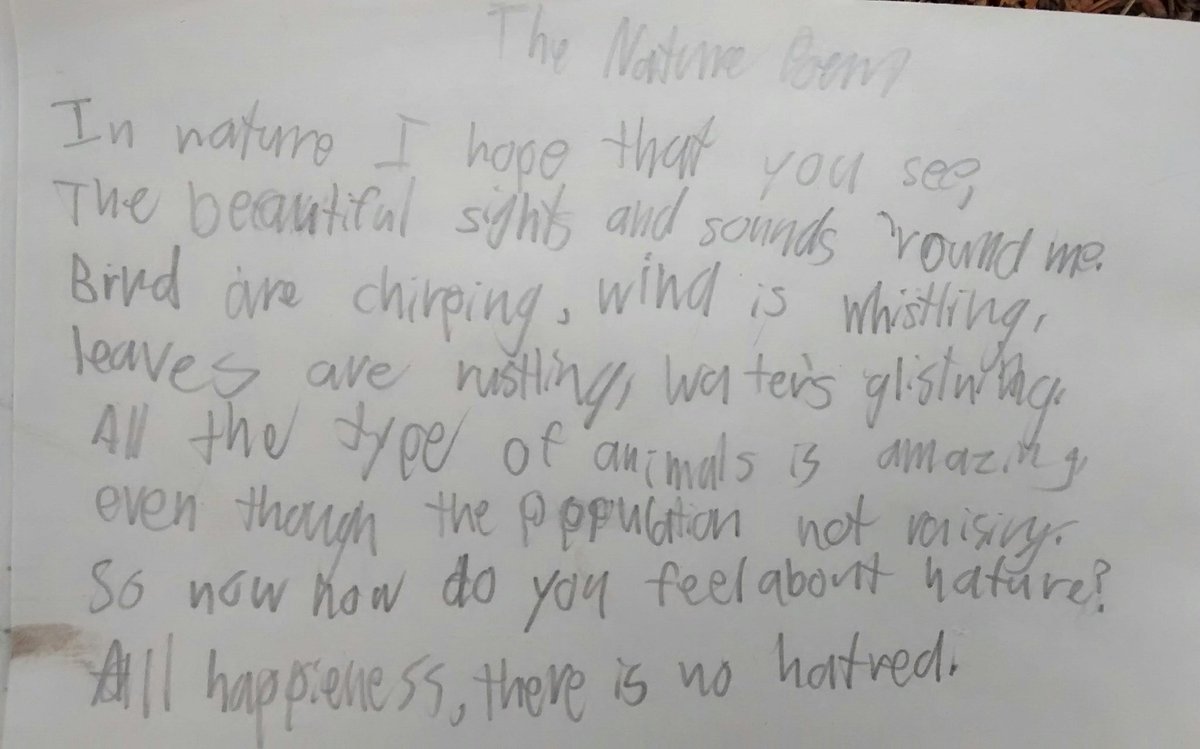 The Nature Poem
In nature I hope that you see,
The beautiful sights and sounds 'round me.
Bird are chirping, wind is whistling,
leaves are rustling, water's glisturing.
All the type of animals is amazing,
even though the population not raising.
So now how do you feel about nature?
All happieness, there is no hatred.